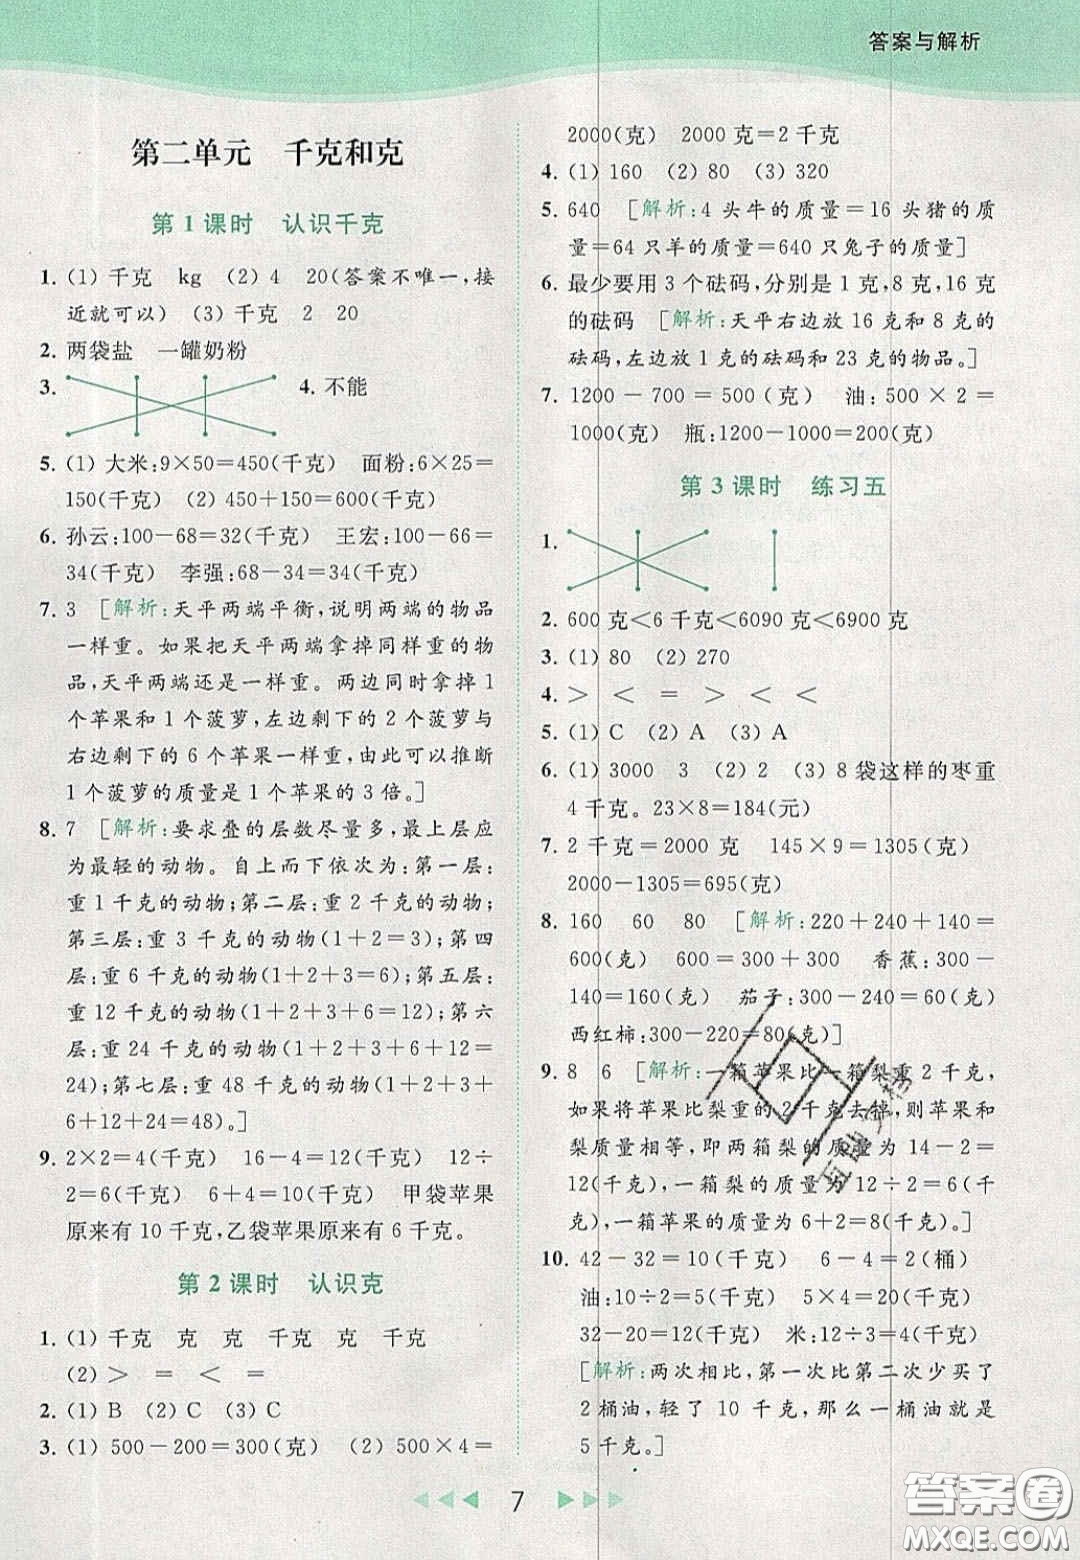 答案与解析
第二单元　千克和克
第 1 课时　认识千克
1. (1) 千克　kg　(2) 4　20(答案不唯一,接
近就可以)　(3) 千克　2　20
2. 两袋盐　一罐奶粉
3.　4. 不能
5. (1) 大米:9×50=450(千克)　面粉:6×25=
150(千克)　(2) 450+150=600(千克)
6. 孙云:100-68=32(千克)　王宏:100-66=
34(千克)　李强:68-34=34(千克)
7. 3　[解析:天平两端平衡,说明两端的物品
一样重。如果把天平两端拿掉同样重的物
品,天平两端还是一样重。两边同时拿掉 1
个苹果和 1 个菠萝,左边剩下的 2 个菠萝与
右边剩下的 6 个苹果一样重,由此可以推断
1 个菠萝的质量是 1 个苹果的 3 倍。]
8. 7　[解析:要求叠的层数尽量多,最上层应
为最轻的动物。自上而下依次为:第一层:
重 1 千克的动物;第二层:重 2 千克的动物;
第三层:重 3 千克的动物(1+2=3);第四
层:重 6 千克的动物(1+2+3=6);第五层:
重 12 千克的动物(1+2+3+6=12);第六
层:重 24 千克的动物(1+2+3+6+12=
24);第七层:重 48 千克的动物(1+2+3+
6+12+24=48)。]
9. 2×2=4(千克)　16-4=12(千克)　12÷
2=6(千克)　6+4=10(千克)　甲袋苹果
原来有 10 千克,乙袋苹果原来有 6 千克。
第 2 课时　认识克
1. (1) 千克　克　克　千克　克　千克
(2) >　=　=　<　=
2. (1) B　(2) C　(3) C
3. (1) 500-200=300(克)　(2) 500×4=
2000(克)　2000 克=2 千克
4. (1) 160　(2) 80　(3) 320
5. 640　[解析:4 头牛的质量=16 头猪的质
量=64 只羊的质量=640 只兔子的质量]
6. 最少要用 3 个砝码,分别是 1 克,8 克,16 克
的砝码　[解析:天平右边放 16 克和 8 克的
砝码,左边放 1 克的砝码和 23 克的物品。]
7. 1200-700=500(克)　油:500×2=
1000(克)　瓶:1200-1000=200(克)
第 3 课时　练习五
1.
2. 600 克<6 千克<6090 克<6900 克
3. (1) 80　(2) 270
4. >　<　=　>　<　<
5. (1) C　(2) A　(3) A
6. (1) 3000　3　(2) 2　(3) 8 袋这样的枣重
4 千克。23×8=184(元)
7. 2 千克=2000 克　145×9=1305(克)
2000-1305=695(克)
8. 160　60　80　[解析:220+240+140=
600(克)　600=300+300　香蕉:300-
140=160(克)　茄子:300-240=60(克)
西红柿:300-220=80(克)]
9. 8　6　[解析:一箱苹果比一箱梨重 2 千克,
如果将苹果比梨重的 2 千克去掉,则苹果和
梨质量相等,即两箱梨的质量为 14-2=
12(千克),一箱梨的质量为 12÷2=6(千
克),一箱苹果的质量为 6+2=8(千克)。]
10. 42-32=10(千克)　6-4=2(桶)
油:10÷2=5(千克)　5×4=20(千克)
32-20=12(千克)　米:12÷3=4(千克)
[解析:两次相比,第一次比第二次少买了
2 桶油,轻了 10 千克,那么一桶油就是
5 千克。]
7
答案圈
MXQE.COM